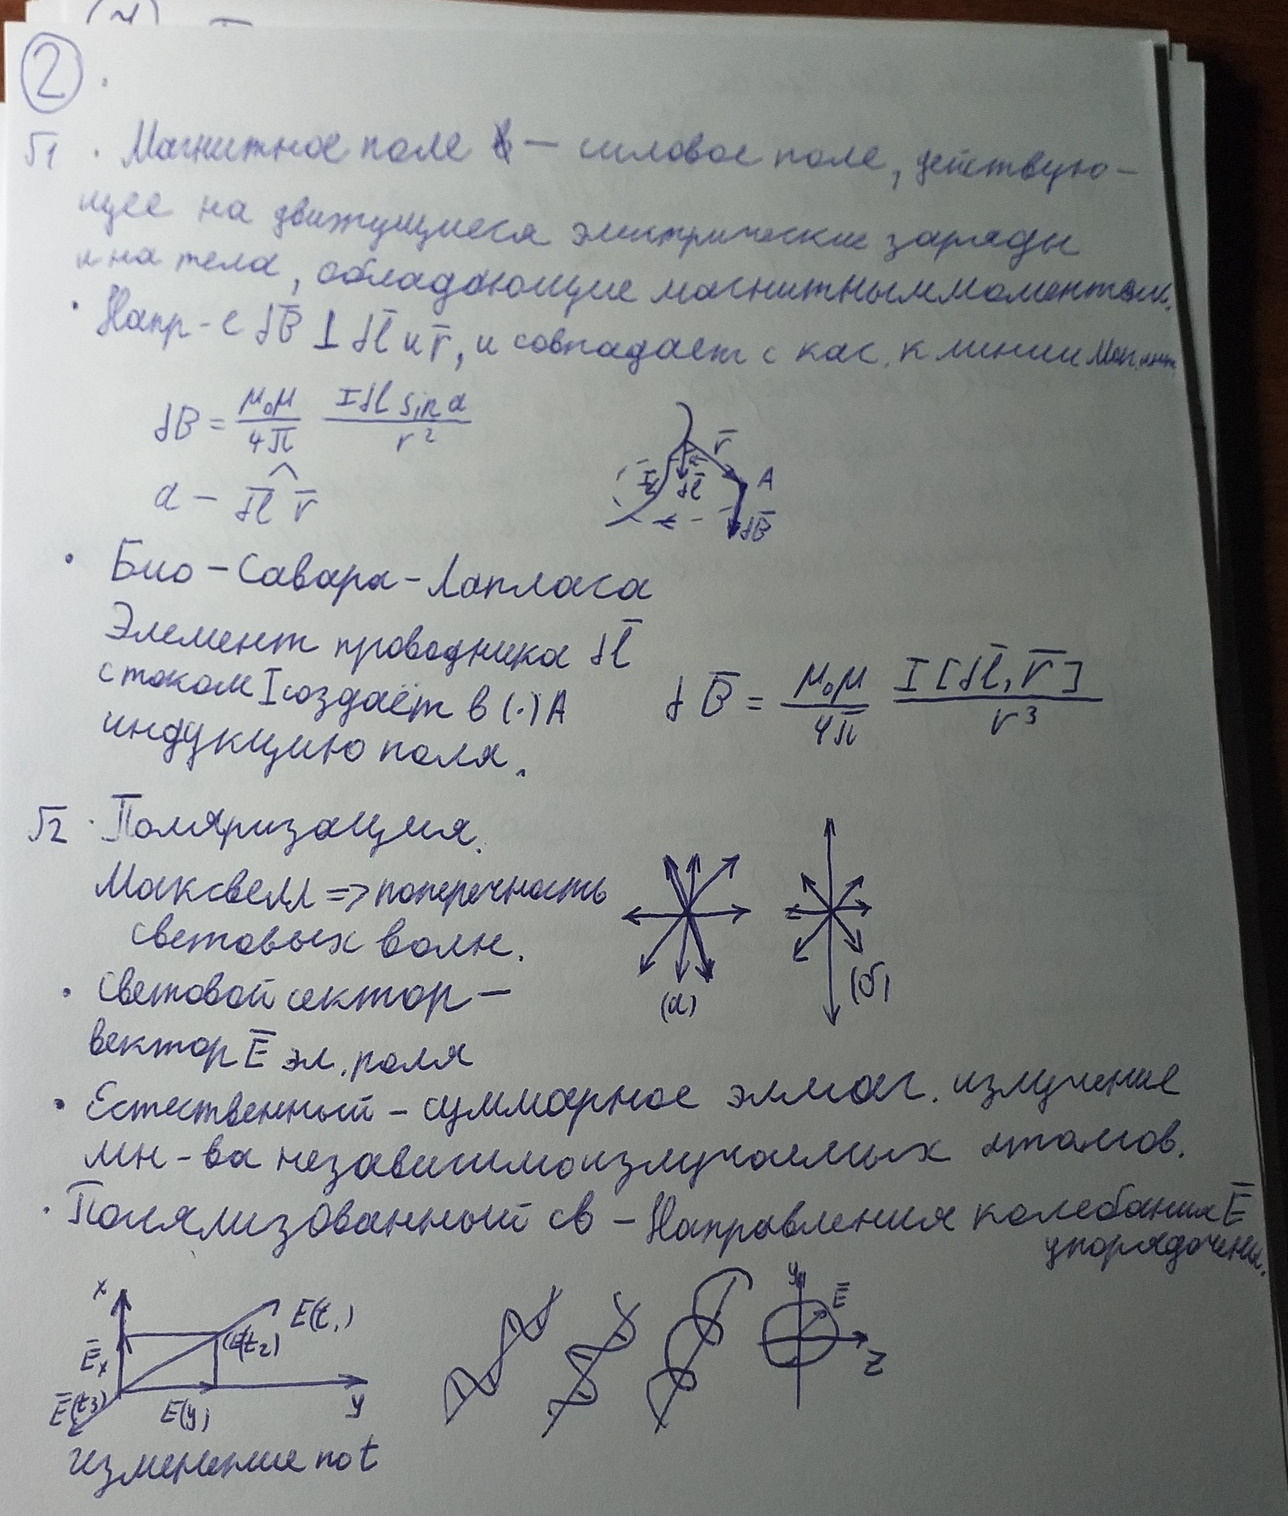 2
√1. Магнитное поле — силовое поле, действую-
щее на движущиеся электрические заряды
и на тела, обладающие магнитным моментом.
Напр-е dB̅ ⊥ dl̅ и r̅, и совпадает с кас. к линии
dB = μ₀μ/4π · Idl sin α/r²
α — dl̅ ^ r̅
r̅ I dl̅ A dB̅
Био-Савара-Лапласа
Элемент проводника dl̅
с током I создаёт в (·) A
индукцию поля.
dB̅ = μ₀μ/4π · I[dl̅, r̅]/r³
√2. Поляризация.
Максвелл => поперечность
световых волн.
(а) (б)
Световой сектор —
вектор E̅ эл. поля
Естественный - суммарное элмаг. излучение
мн-ва независимо излучаемых атомов.
Полялизованный св — Направления колебания E̅
упорядочены.
x E(t₁)
E̅x E(t₂)
E̅(t₃) E(y) y
y E̅ z
изменение по t